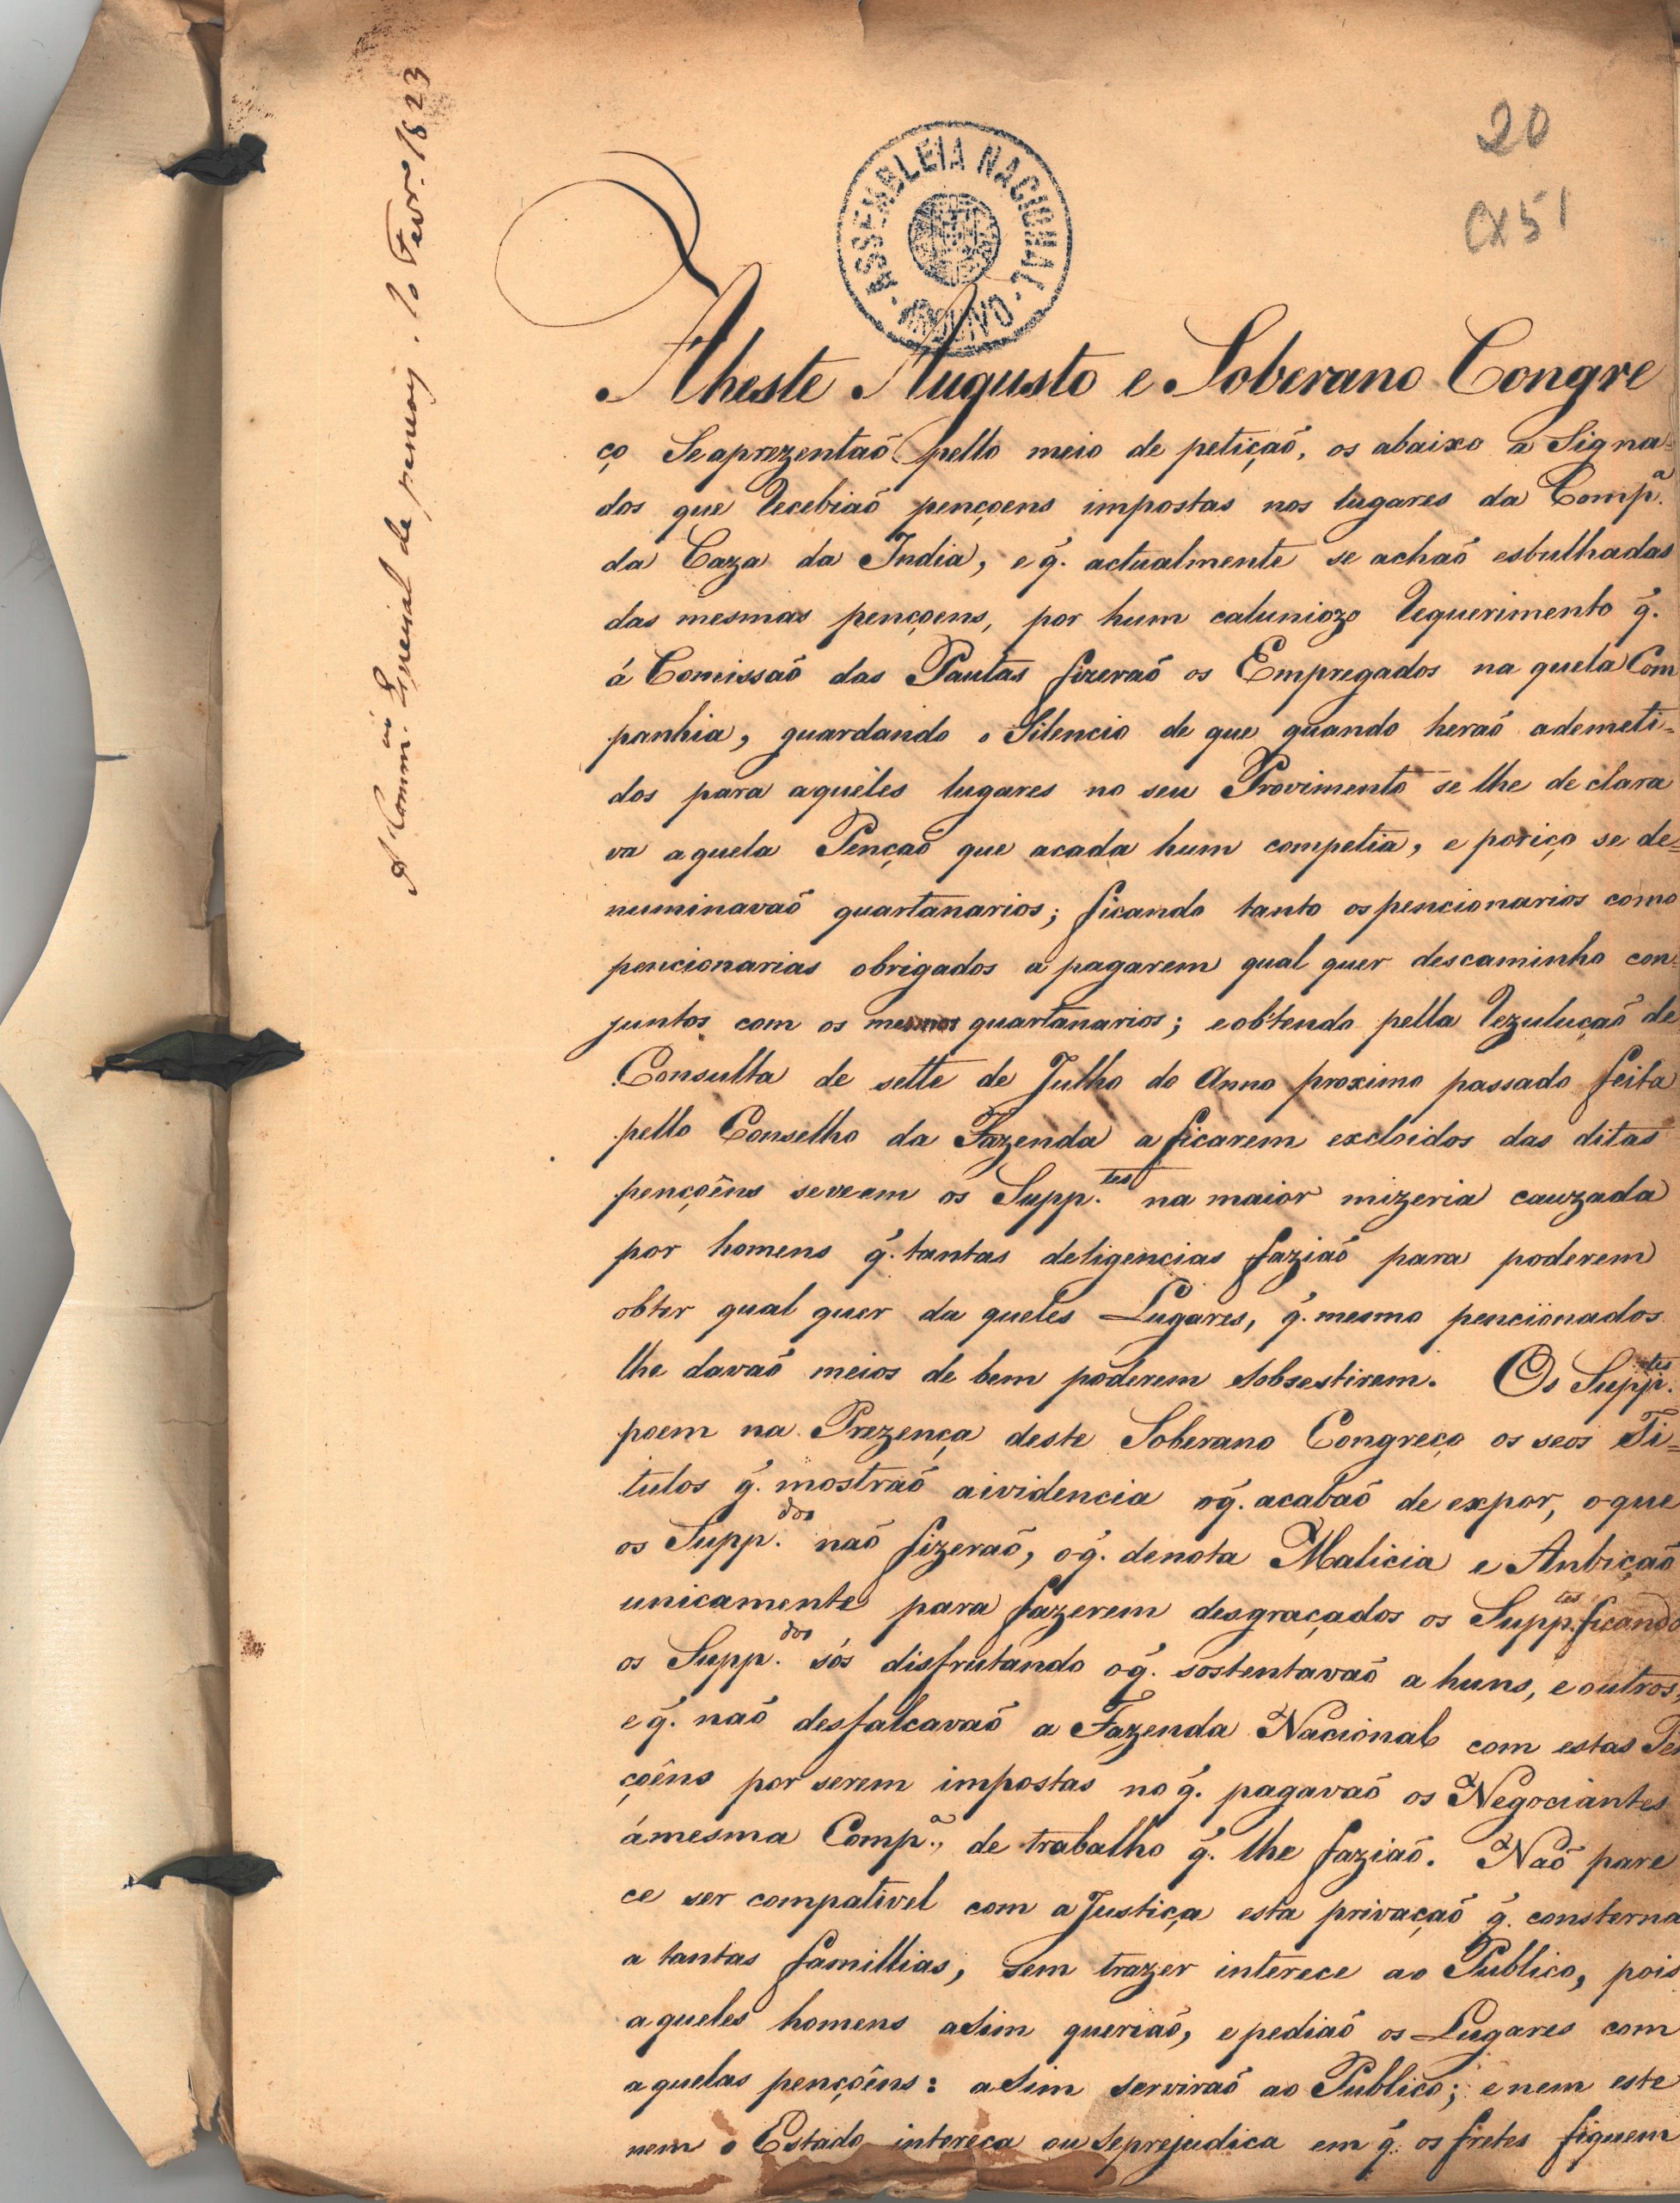 20
CX 51
ASSEMBLEIA NACIONAL
ARQUIVO
Á Comm.ão Especial de pensoẽs. 10 Fevr.o 1823
Aheste Augusto e Soberano Congre
ço Seaprezentaõ pello meio de petiçaõ, os abaixo a Signa=
dos que recebiaõ pençoens impostas nos lugares da Comp.a
da Caza da India, e q̃. actualmente se achaõ esbulhadas
das mesmas pençoens, por hum caluniozo requerimento q̃.
á Comissaõ das Pautas fizeraõ os Empregados na quela Com
panhia, guardando o Silencio de que quando heraõ ademeti=
dos para aqueles lugares no seu Provimento se lhe de clara
va aquela Pençaõ que acada hum competia, e poriço se de=
numinavaõ quartanarios; ficando tanto os pencionarios como
pencionarias obrigados a pagarem qual quer descaminho con=
juntos com os mesmos quartanarios; eobtendo pella rezuluçaõ de
Consulta de sette de Julho do Anno proximo passado feita
pello Conselho da Fazenda a ficarem excloidos das ditas
pençoẽns seveem os Supp.tes na maior mizeria cauzada
por homens q̃. tantas deligencias faziaõ para poderem
obter qual quer da queles Lugares, q̃. mesmo pencionados
lhe davaõ meios de bem poderem sobsestirem. Os Supp.tes
poem na Prezença deste Soberano Congreço os seos Ti=
tulos q̃. mostraõ aividencia oq̃. acabaõ de expor, oque
os Supp.dos naõ fizeraõ, oq̃. denota Malicia e Anbiçaõ
unicamente para fazerem desgraçados os Supp.tes ficando
os Supp.dos sós disfrutando oq̃. sostentavaõ a huns, e outros,
e q̃. naõ desfalcavaõ a Fazenda Nacional com estas Pen
çoẽns por serem impostas no q̃. pagavaõ os Negociantes
ámesma Comp.a, de trabalho q̃. lhe faziaõ. Naõ pare
ce ser compativel com a Justiça esta privaçaõ q̃. consterna
a tantas famillias, sem trazer interece ao Publico, pois
aqueles homens asim queriaõ, e pediaõ os Lugares com
aquelas pençoẽns: asim serviraõ ao Publico; e nem este
nem o Estado intereça ou Seprejudica em q̃. os fretes fiquem